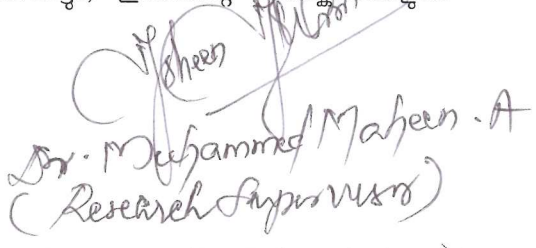 Dr. Muhammed Maheen . A
(Research Supervisor)